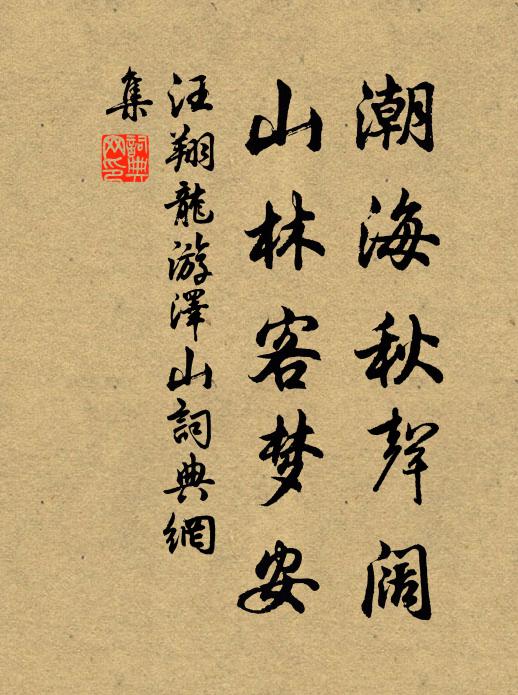 潮海秋聲阔
山林客梦安
汪翔龍游澤山詞典網
集
詞典網印